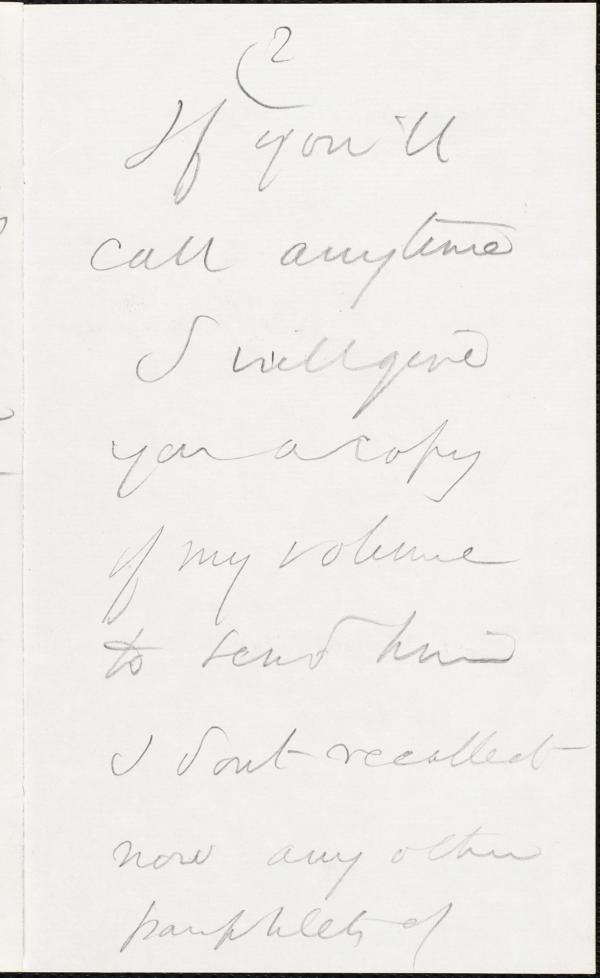 2
If you'll
call anytime
I will give
you a copy
of my volume
to send him
I dont recollect
now any other
pamphlets of